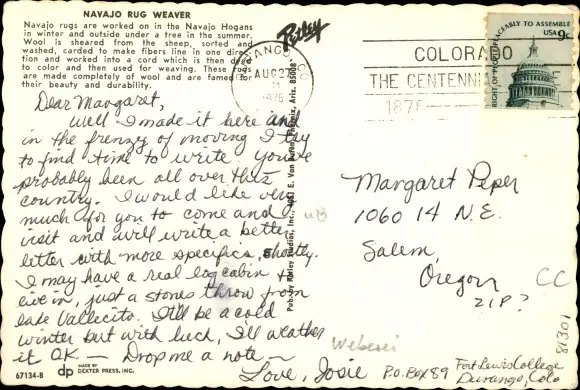 NAVAJO RUG WEAVER
Navajo rugs are worked on in the Navajo Hogans
in winter and outside under a tree in the summer.
Wool is sheared from the sheep, sorted and
washed, carded to make fibers line in one direc-
tion and worked into a cord which is then dyed
to color and then used for weaving. These rugs
are made completely of wool and are famed for
their beauty and durability.
Dear Margaret,
Well I made it here and
in the frenzy of moving I try
to find time to write. You've
probably been all over this
country. I would like very
much for you to come and
visit and will write a better
letter with more specifics, shortly.
I may have a real log cabin to
live in, just a stones throw from
lake Vallecito. It'll be a cold
winter but with luck, I'll weather
it OK — Drop me a note —
Love, Josie
P.O. Box 89
Fort Lewis College
Durango, Colo
81301
67134-B
dp MADE BY
DEXTER PRESS, INC.
Petley
Pub. by Petley Studios, Inc., E. Van Buren, Phoenix, Ariz. 85008
DURANGO, CO
AUG 27
1976
COLORADO
THE CENTENNIAL
1876
RIGHT OF PEOPLE PEACEABLY TO ASSEMBLE
USA 9c
Margaret Peper
1060 14 N.E.
Salem,
Oregon
ZIP?
CC